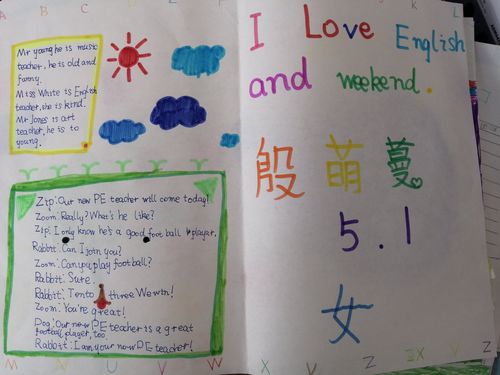 A B C D Z F
Mr young he is music
teacher, he is old and
funny.
Miss White is English
teacher, she is kind.
Mr Jones is art
teacher, he is to
young.
Zip: Our new PE teacher will come today!
Zoom: Really? What's he like?
Zip: I only know he's a good football player.
Rabbit: Can I join you?
Zoom: Can you play football?
Rabbit: Sure.
Rabbit: Ten to three We win!
Zoom: You're great!
Dog: Our new PE teacher is a great
football player, too.
Rabbit: I am your new PE teacher!
M N U V W
I Love English
and weekend.
殷萌蔓
5.1
女
X V Z X V Z